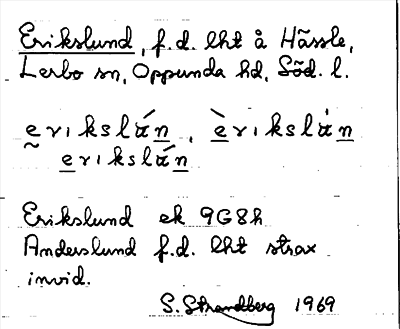 Erikslund, f.d. lht å Hässle,
Lerbo sn, Oppunda hd, Söd. l.
Erikslund ek 9G8h
Anderslund f.d. lht strax
invid.
S. Strandberg 1969